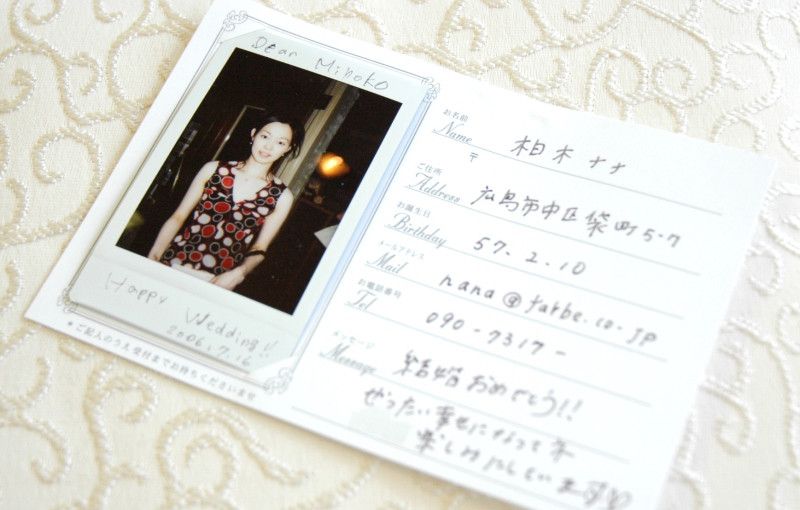 Dear Mihoko
Happy Wedding!!
2006.7.16
*ご記入のうえ受付までお持ちくださいませ
お名前
Name
柏木ナナ
〒
ご住所
Address
広島市中区袋町5-7
お誕生日
Birthday
57.2.10
メールアドレス
Mail
nana@farbe.co.jp
お電話番号
Tel
090-7317-
メッセージ
Message
結婚おめでとう!!
ぜったい幸せになって
楽しみにしています♡